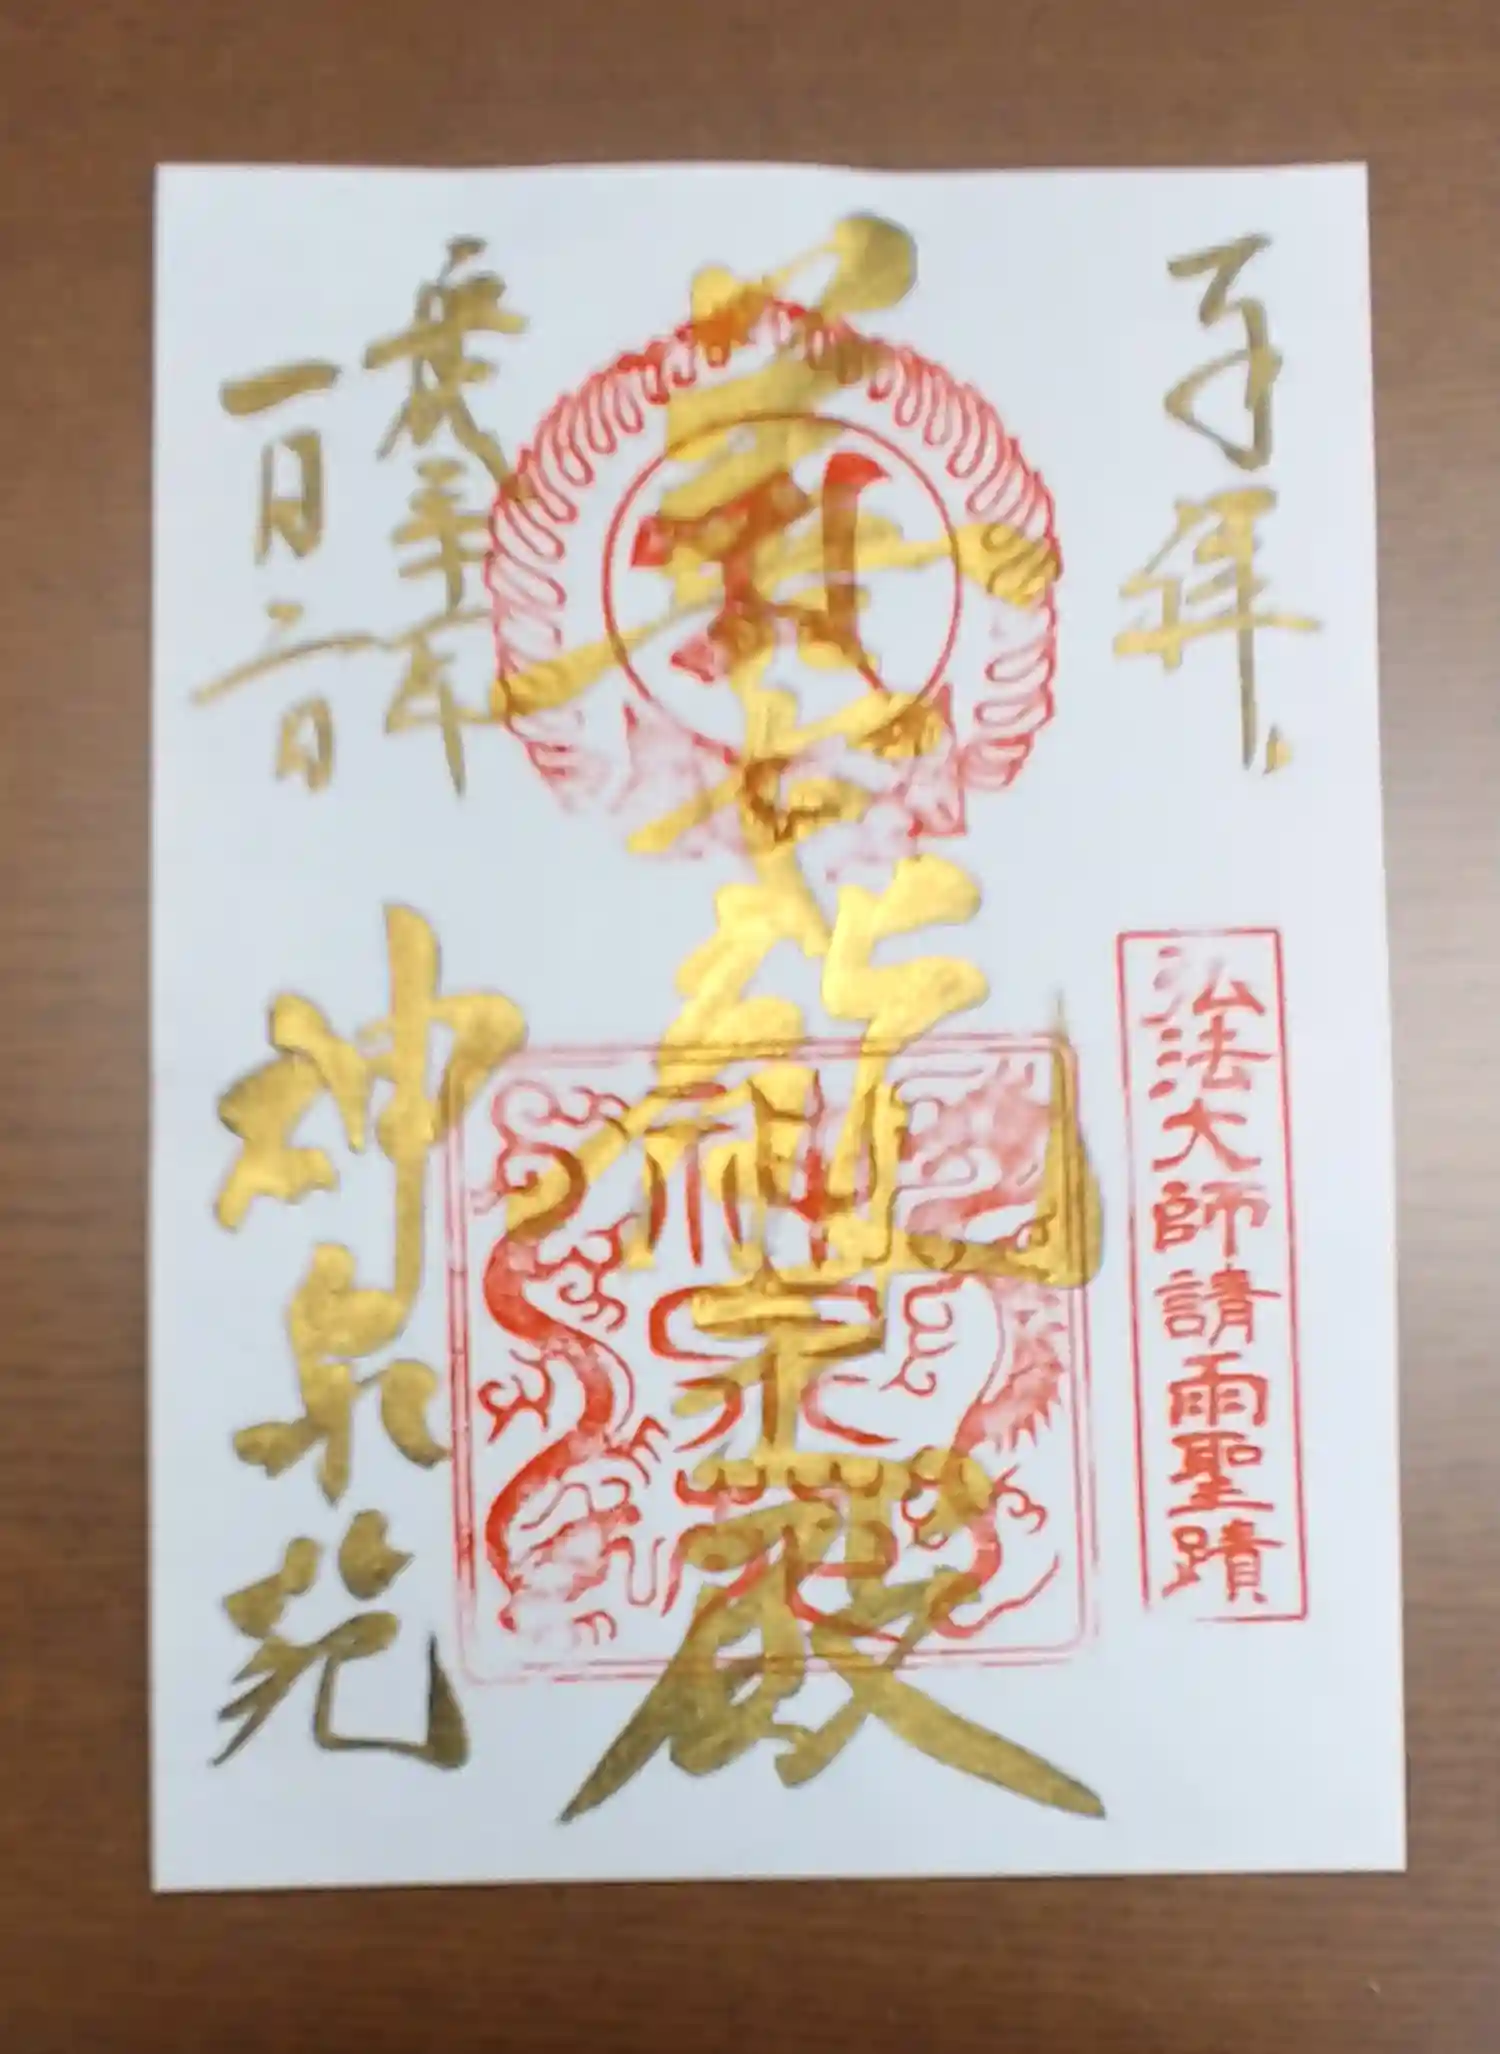 奉拝
弘法大師請雨聖蹟
善女龍王殿
神泉苑
平成三十年
一月二日
神泉苑